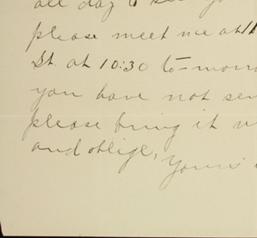 all day to see you
please meet me at
St. at 10:30 to-mor
you have not sen
please bring it w
and oblige,
Yours